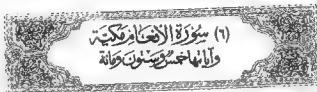 (٦) سُورَةُ الأنعَامِ مَكِيَّة
وَآيَاتُهَا خَمْسٌ وَسِتُّونَ وَمِائَة